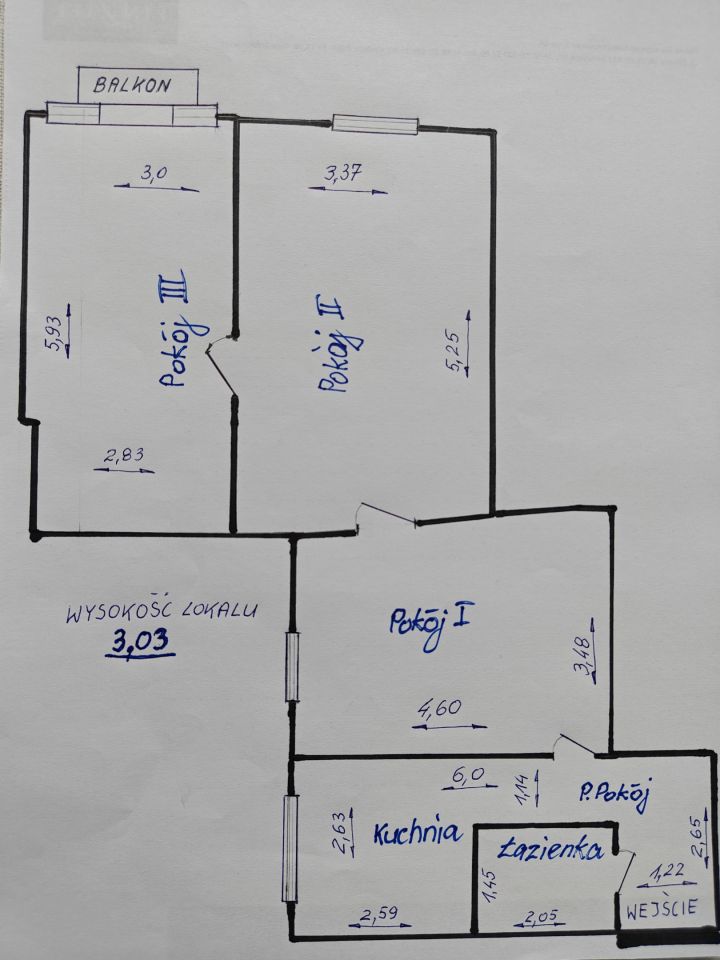 BALKON
3,0
3,37
Pokój III
Pokój II
5,93
5,25
2,83
WYSOKOŚĆ LOKALU
3,03
Pokój I
3,48
4,60
6,0
1,14
P. Pokój
2,63
Kuchnia
Łazienka
2,65
1,45
1,22
2,59
2,05
WEJŚCIE